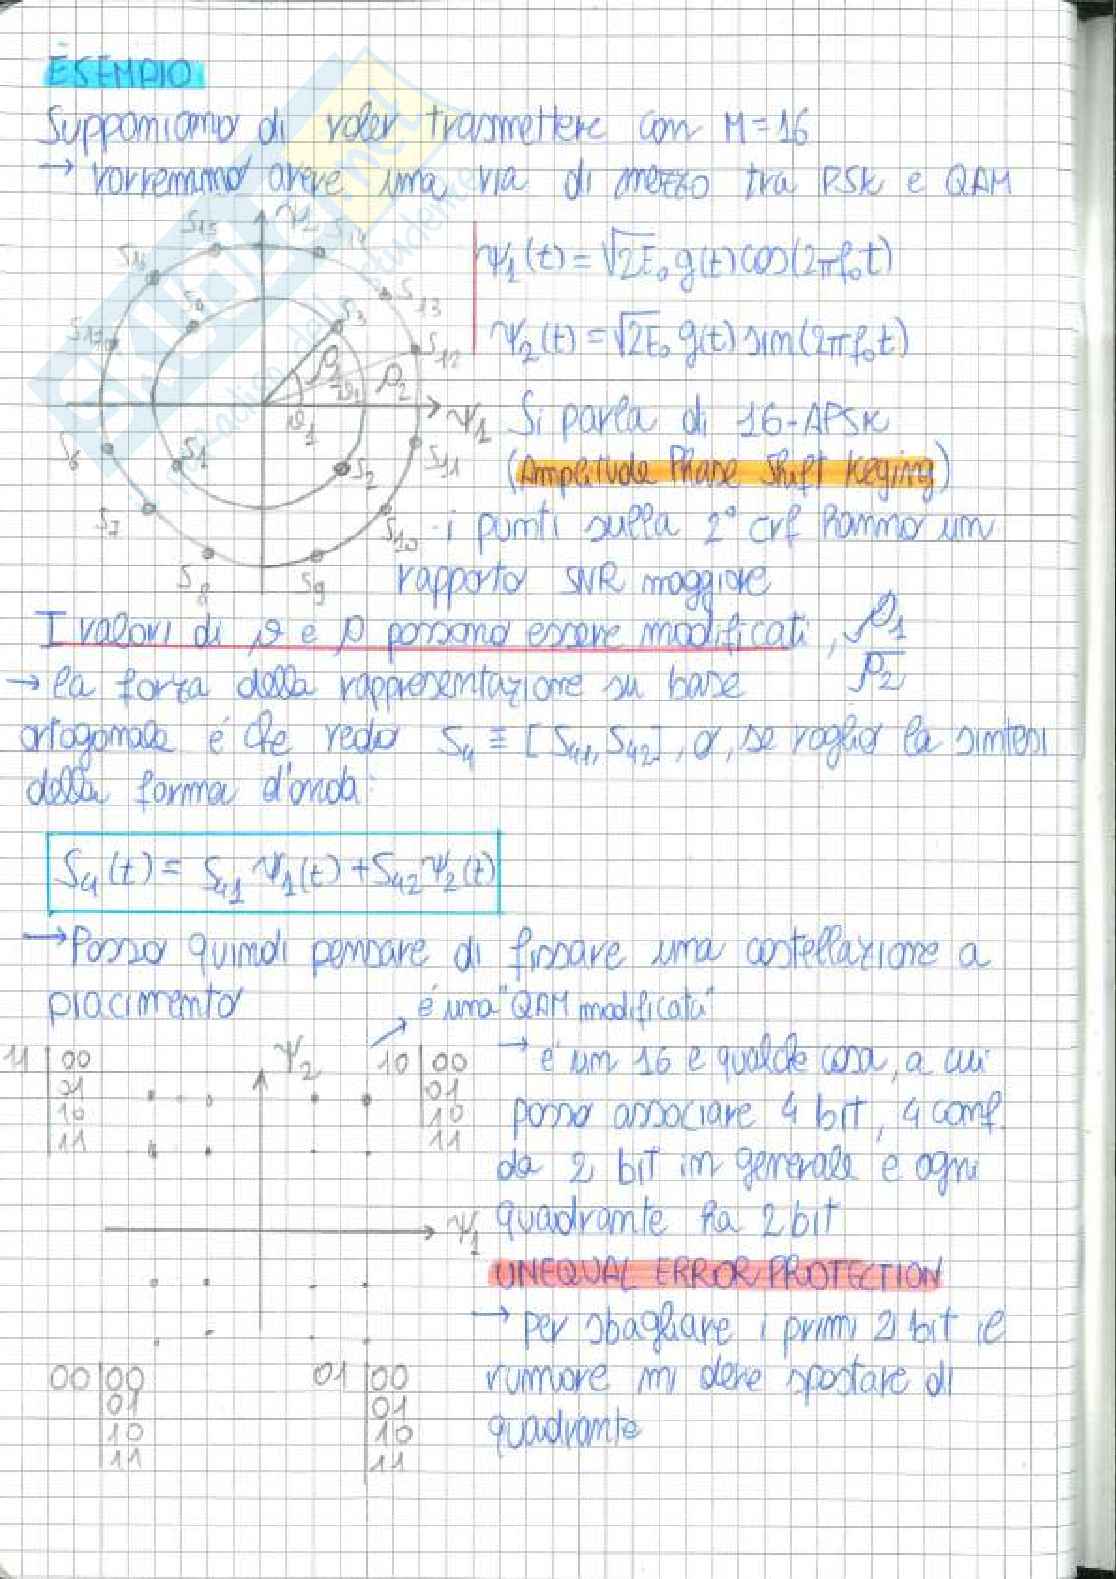 ESEMPIO
Supponiamo di voler trasmettere con M=16
→ vorremmo avere una via di mezzo tra PSK e QAM
S15 ψ2 S14
S16 S13
S0 S3
S17 S12
ρ1 ρ2
ϑ1 ϑ1 ψ1
S6 S1 S2 S11
S7 S10
S8 S9
ψ1(t) = √2E₀ g(t)cos(2πf₀t)
ψ2(t) = √2E₀ g(t) sin(2πf₀t)
Si parla di 16-APSK
(Amplitude Phase Shift Keying)
- i punti sulla 2° crf hanno un
rapporto SNR maggiore
I valori di ϑ e ρ possono essere modificati, ρ1/ρ2
→ la forza della rappresentazione su base
ortogonale é che vedo S4 ≡ [S41, S42], o, se voglio la sintesi
della forma d'onda:
S4(t) = S41 ψ1(t) + S42 ψ2(t)
→ Posso quindi pensare di fissare una costellazione a
piacimento
é una "QAM modificata"
11 | 00 ψ2 10 | 00
01 01
10 10
11 11
ψ1
00 | 00 01 | 00
01 01
10 10
11 11
→ é un 16 e qualche cosa, a cui
posso associare 4 bit, 4 conf.
da 2 bit in generale e ogni
quadrante ha 2 bit
UNEQUAL ERROR PROTECTION
→ per sbagliare i primi 2 bit il
rumore mi deve spostare di
quadrante